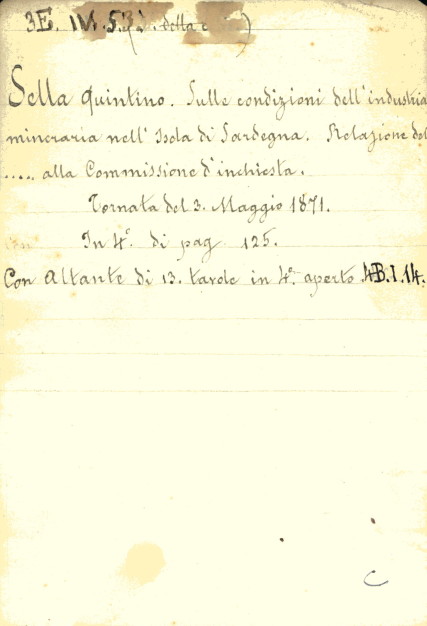 3E. IV. 5. della
Sella Quintino. Sulle condizioni dell'industria
mineraria nell'Isola di Sardegna. Relazione del
..... alla Commissione d'inchiesta.
Tornata del 3. Maggio 1871.
In 4.° di pag 125.
Con Altante di 13. tavole in 4.° aperto 4B.I.14.
C